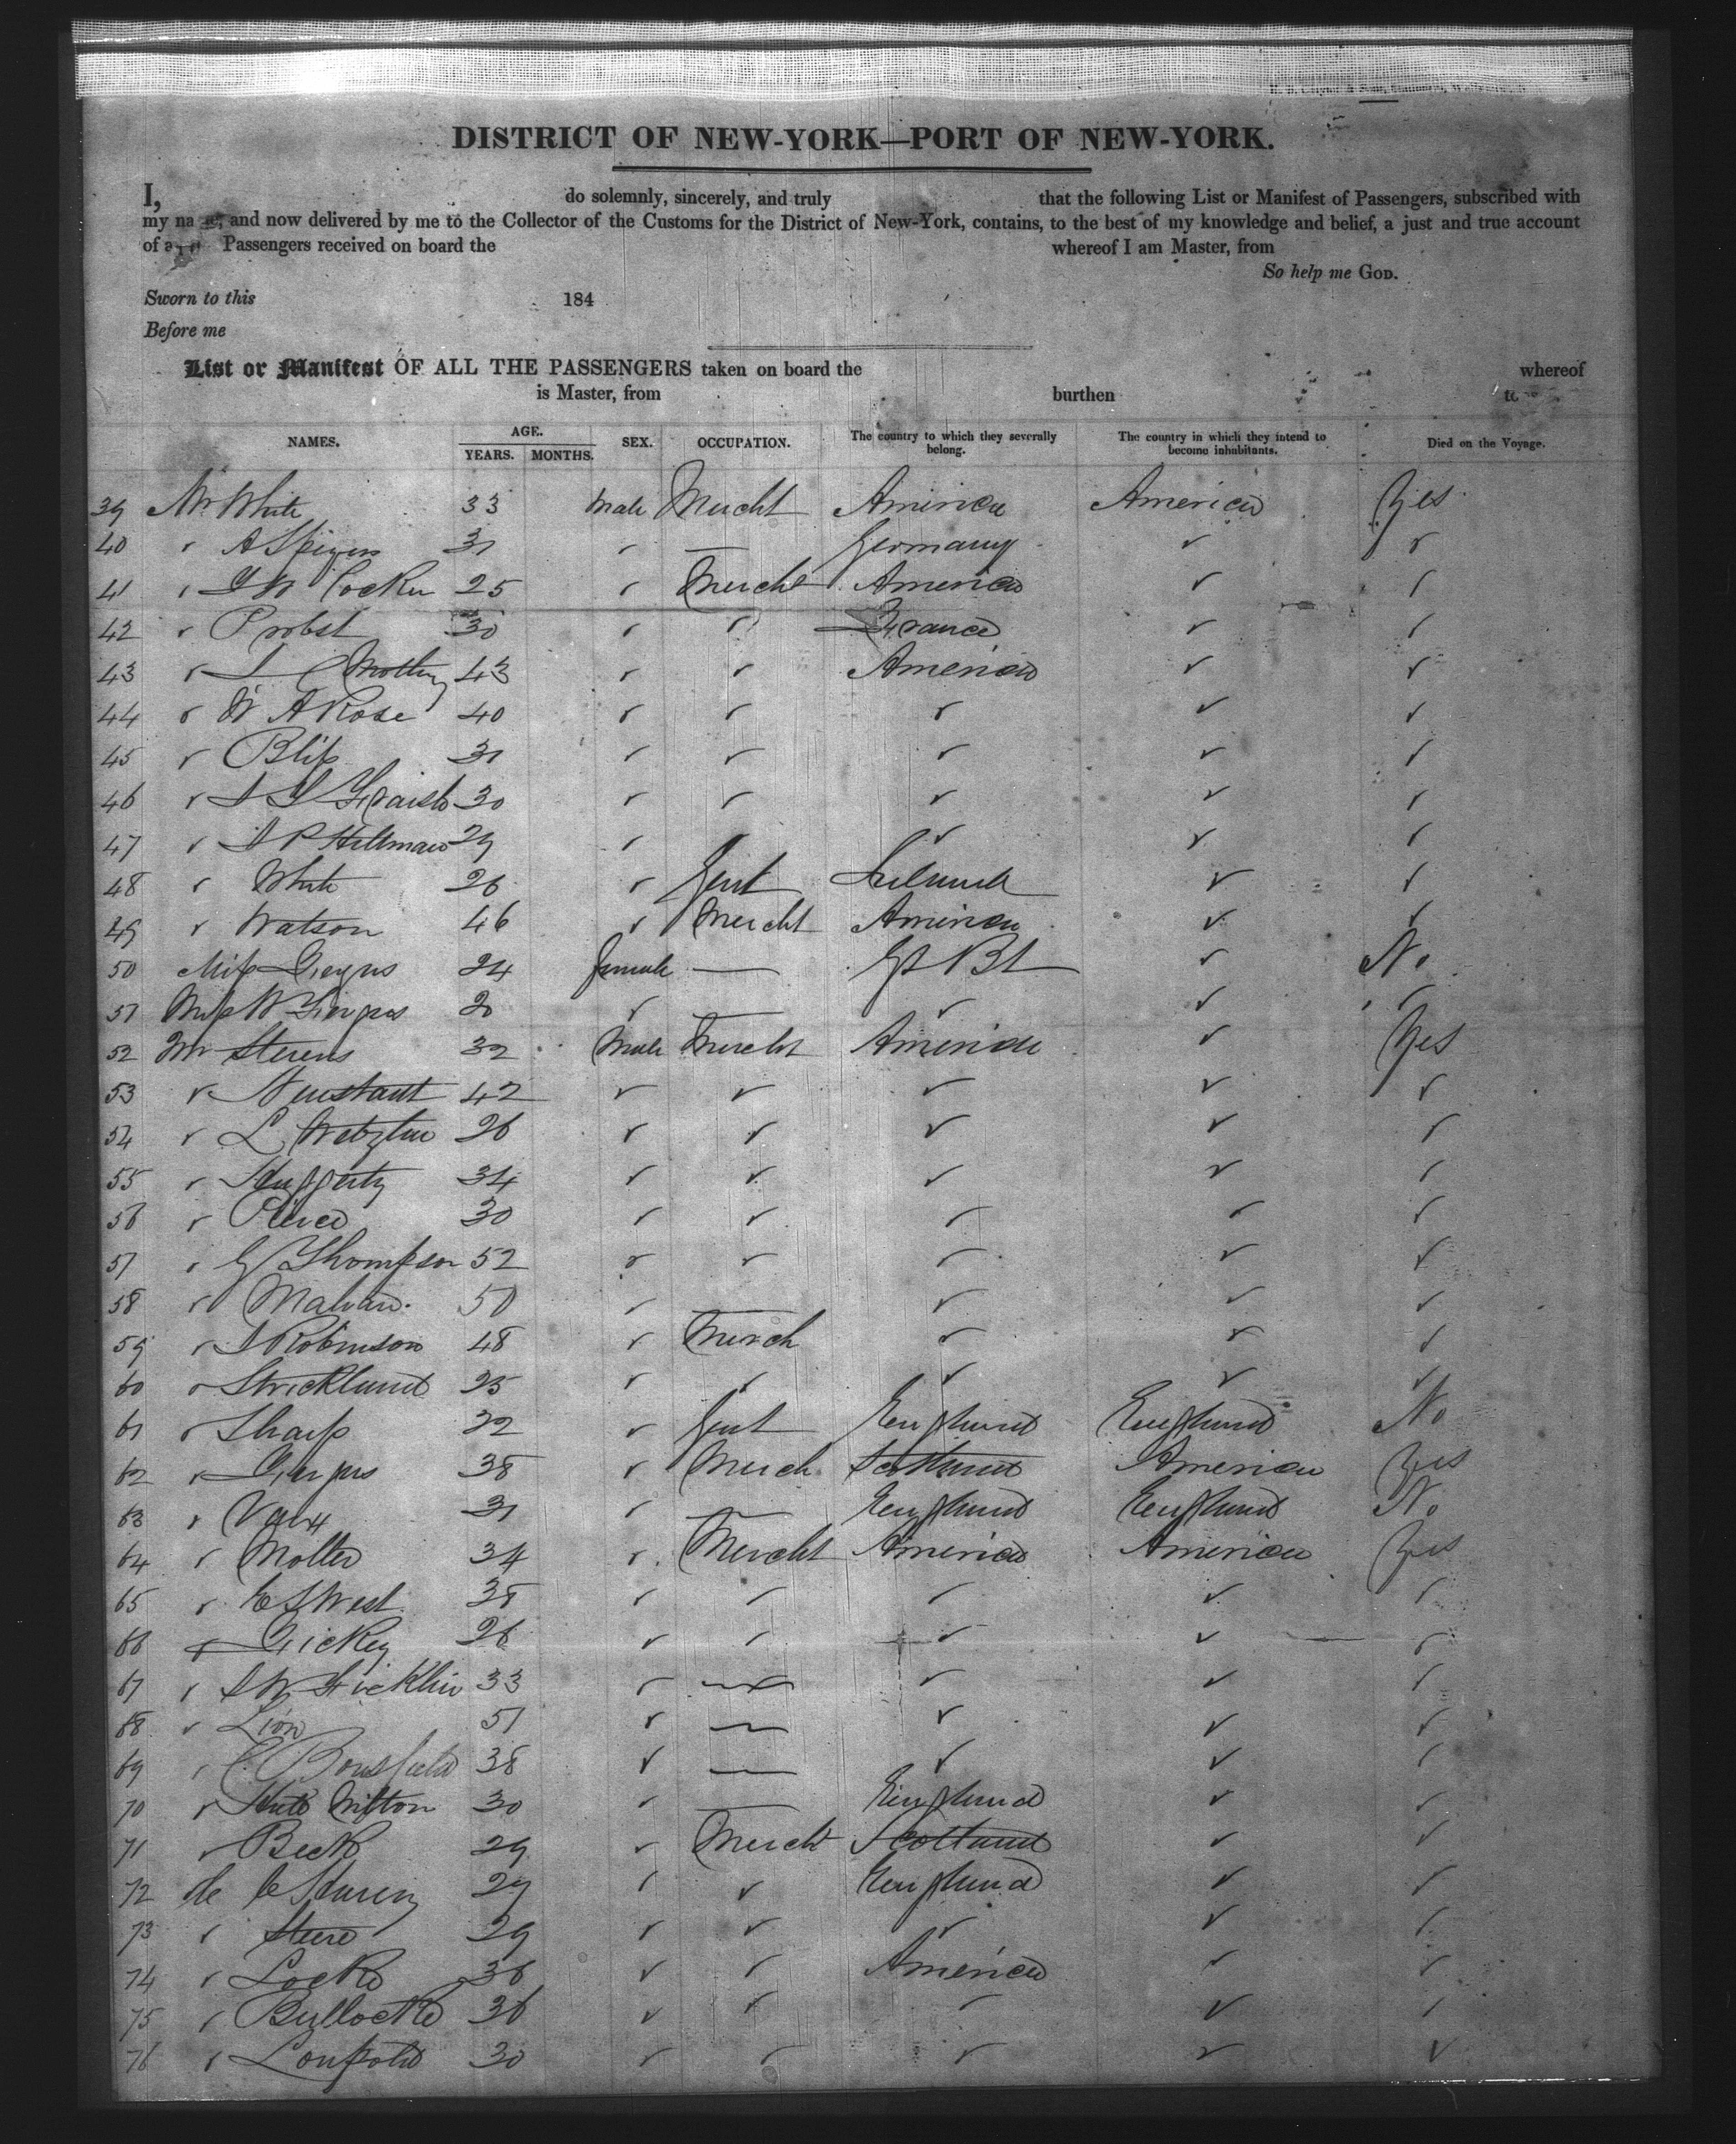 DISTRICT OF NEW-YORK—PORT OF NEW-YORK.
I, do solemnly, sincerely, and truly that the following List or Manifest of Passengers, subscribed with
my na e, and now delivered by me to the Collector of the Customs for the District of New-York, contains, to the best of my knowledge and belief, a just and true account
of a Passengers received on board the whereof I am Master, from
So help me GOD.
Sworn to this 184
Before me
List or Manifest OF ALL THE PASSENGERS taken on board the whereof
is Master, from burthen to
NAMES. AGE. SEX. OCCUPATION. The country to which they severally belong. The country in which they intend to become inhabitants. Died on the Voyage.
YEARS. MONTHS.
39 Mr White 33 Male Mercht America America Yes
40 " A 31 " — Germany " "
41 " Cocker 25 " Mercht America " "
42 " Probst 30 " " France " "
43 " 43 " " America " "
44 " W A Rose 40 " " " " "
45 " Bliss 31 " " " " "
46 " 30 " " " " "
47 " Hellman 29 " " " "
48 " White 26 " Gent Ireland " "
49 " Watson 46 " Mercht America " "
50 Miss 24 female — Gt Bt " No
51 Miss 20 " — " " "
52 Mr Stevens 32 Male Mercht America " Yes
53 " Neustadt 42 " " " " "
54 " L 26 " " " " "
55 " Haggerty 34 " " " " "
56 " Pierce 30 " " " " "
57 " G Thompson 52 " " " " "
58 " 50 " — " " "
59 " J Robinson 48 " Merch " " "
60 " Strickland 25 " " " " "
61 " Sharp 22 " Gent England England No
62 " 38 " Merch Scotland America Yes
63 " 31 " — England England No
64 " Molter 34 " Mercht America America Yes
65 " West 38 " " " " "
66 " Dickey 26 " " " " "
67 " 33 " — " " "
68 " Lion 51 " — " " "
69 " C Bousfield 38 " — " " "
70 " 30 " — England " "
71 " Beck 29 " Mercht Scotland " "
72 29 " " England " "
73 " Steere 29 " " " " "
74 " Locke 36 " " America " "
75 " Bullocke 36 " " " " "
76 " Loupold 30 " " " " "